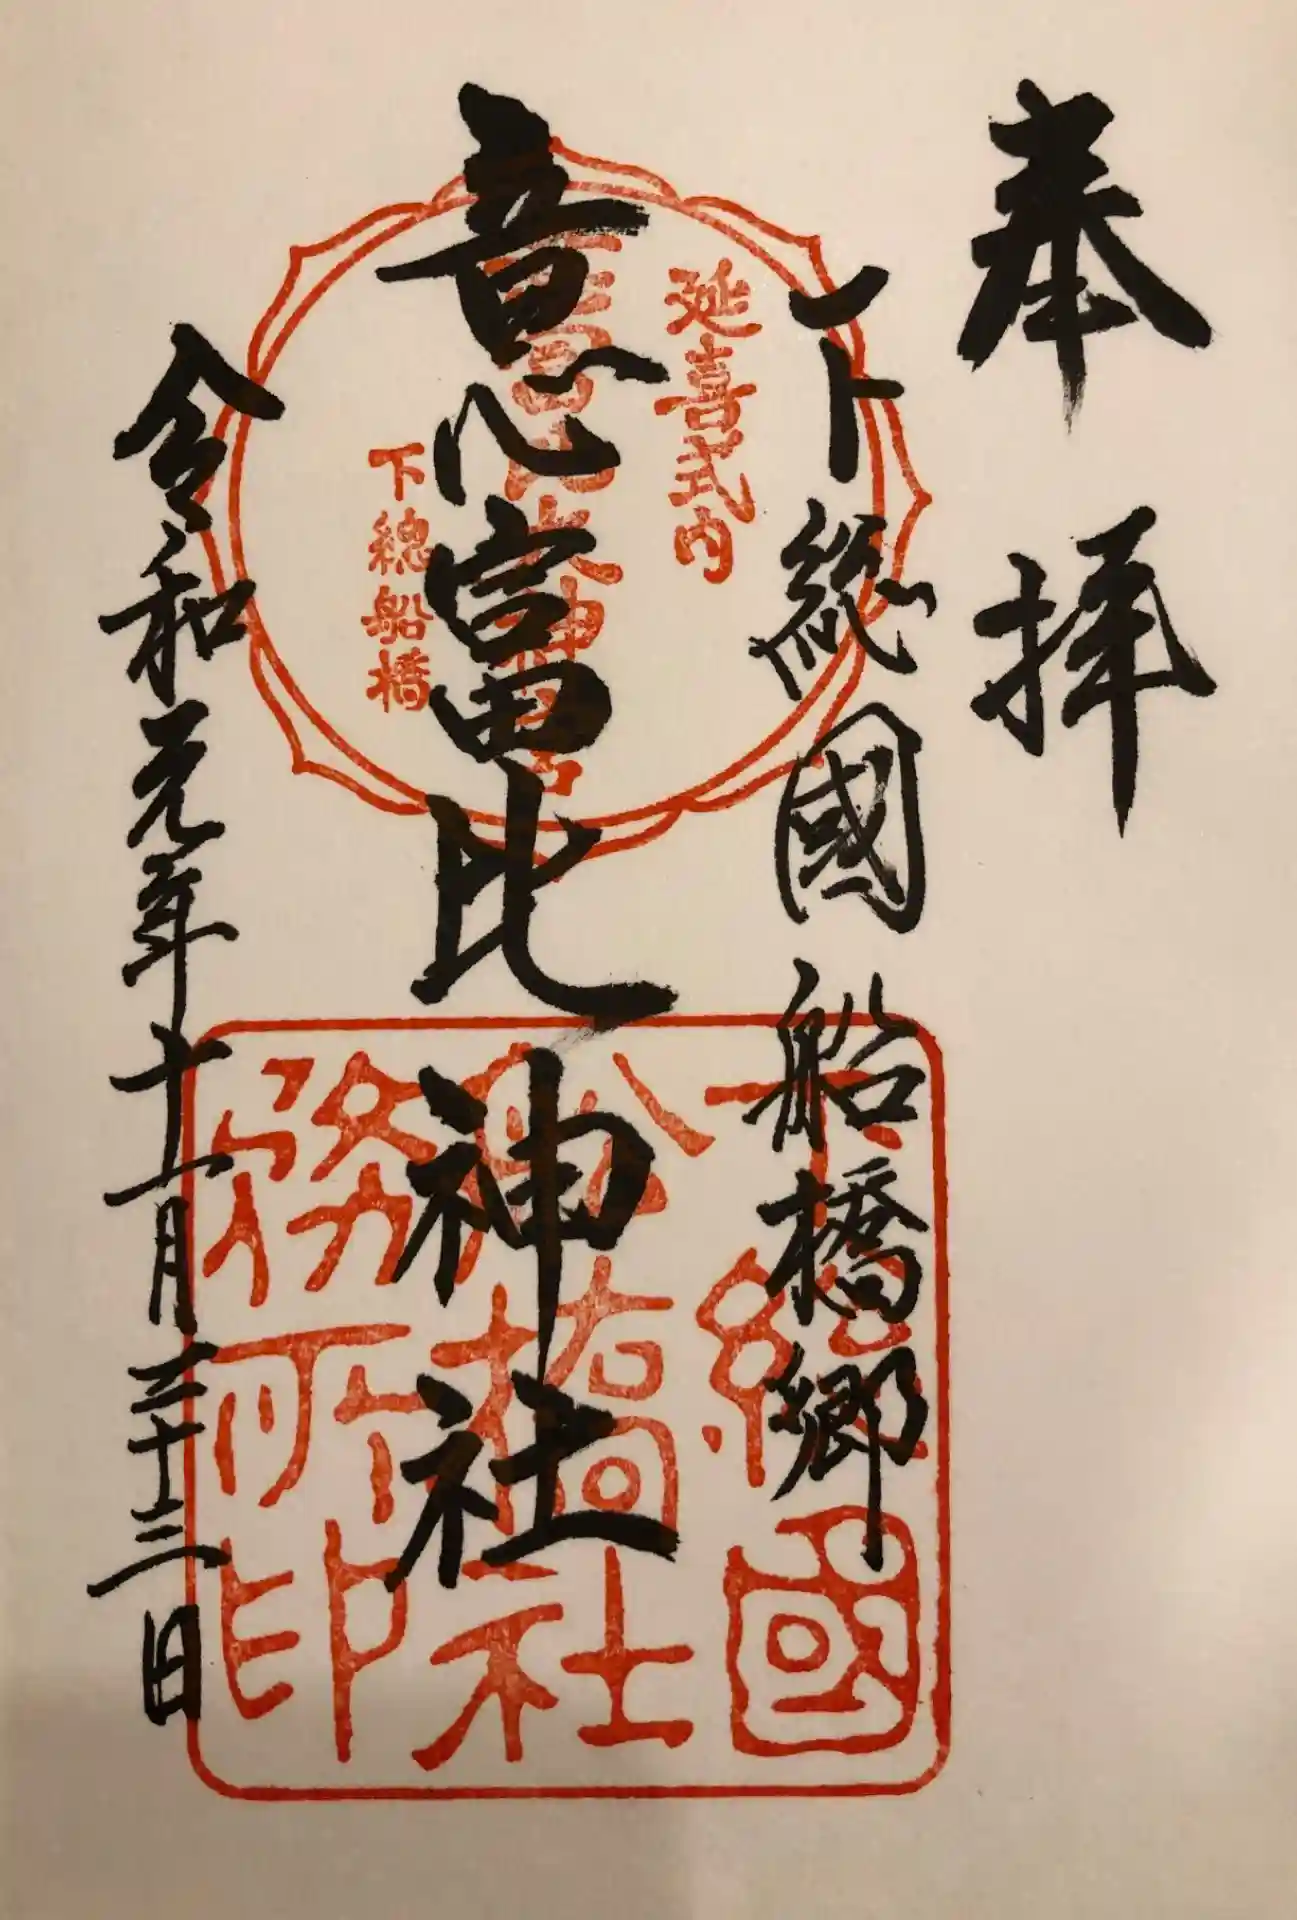 奉拝
下総國船橋郷
意富比神社
令和元年十一月二十三日
延喜式内
意富比大神宮
下總船橋
下總國
船橋社
務所印